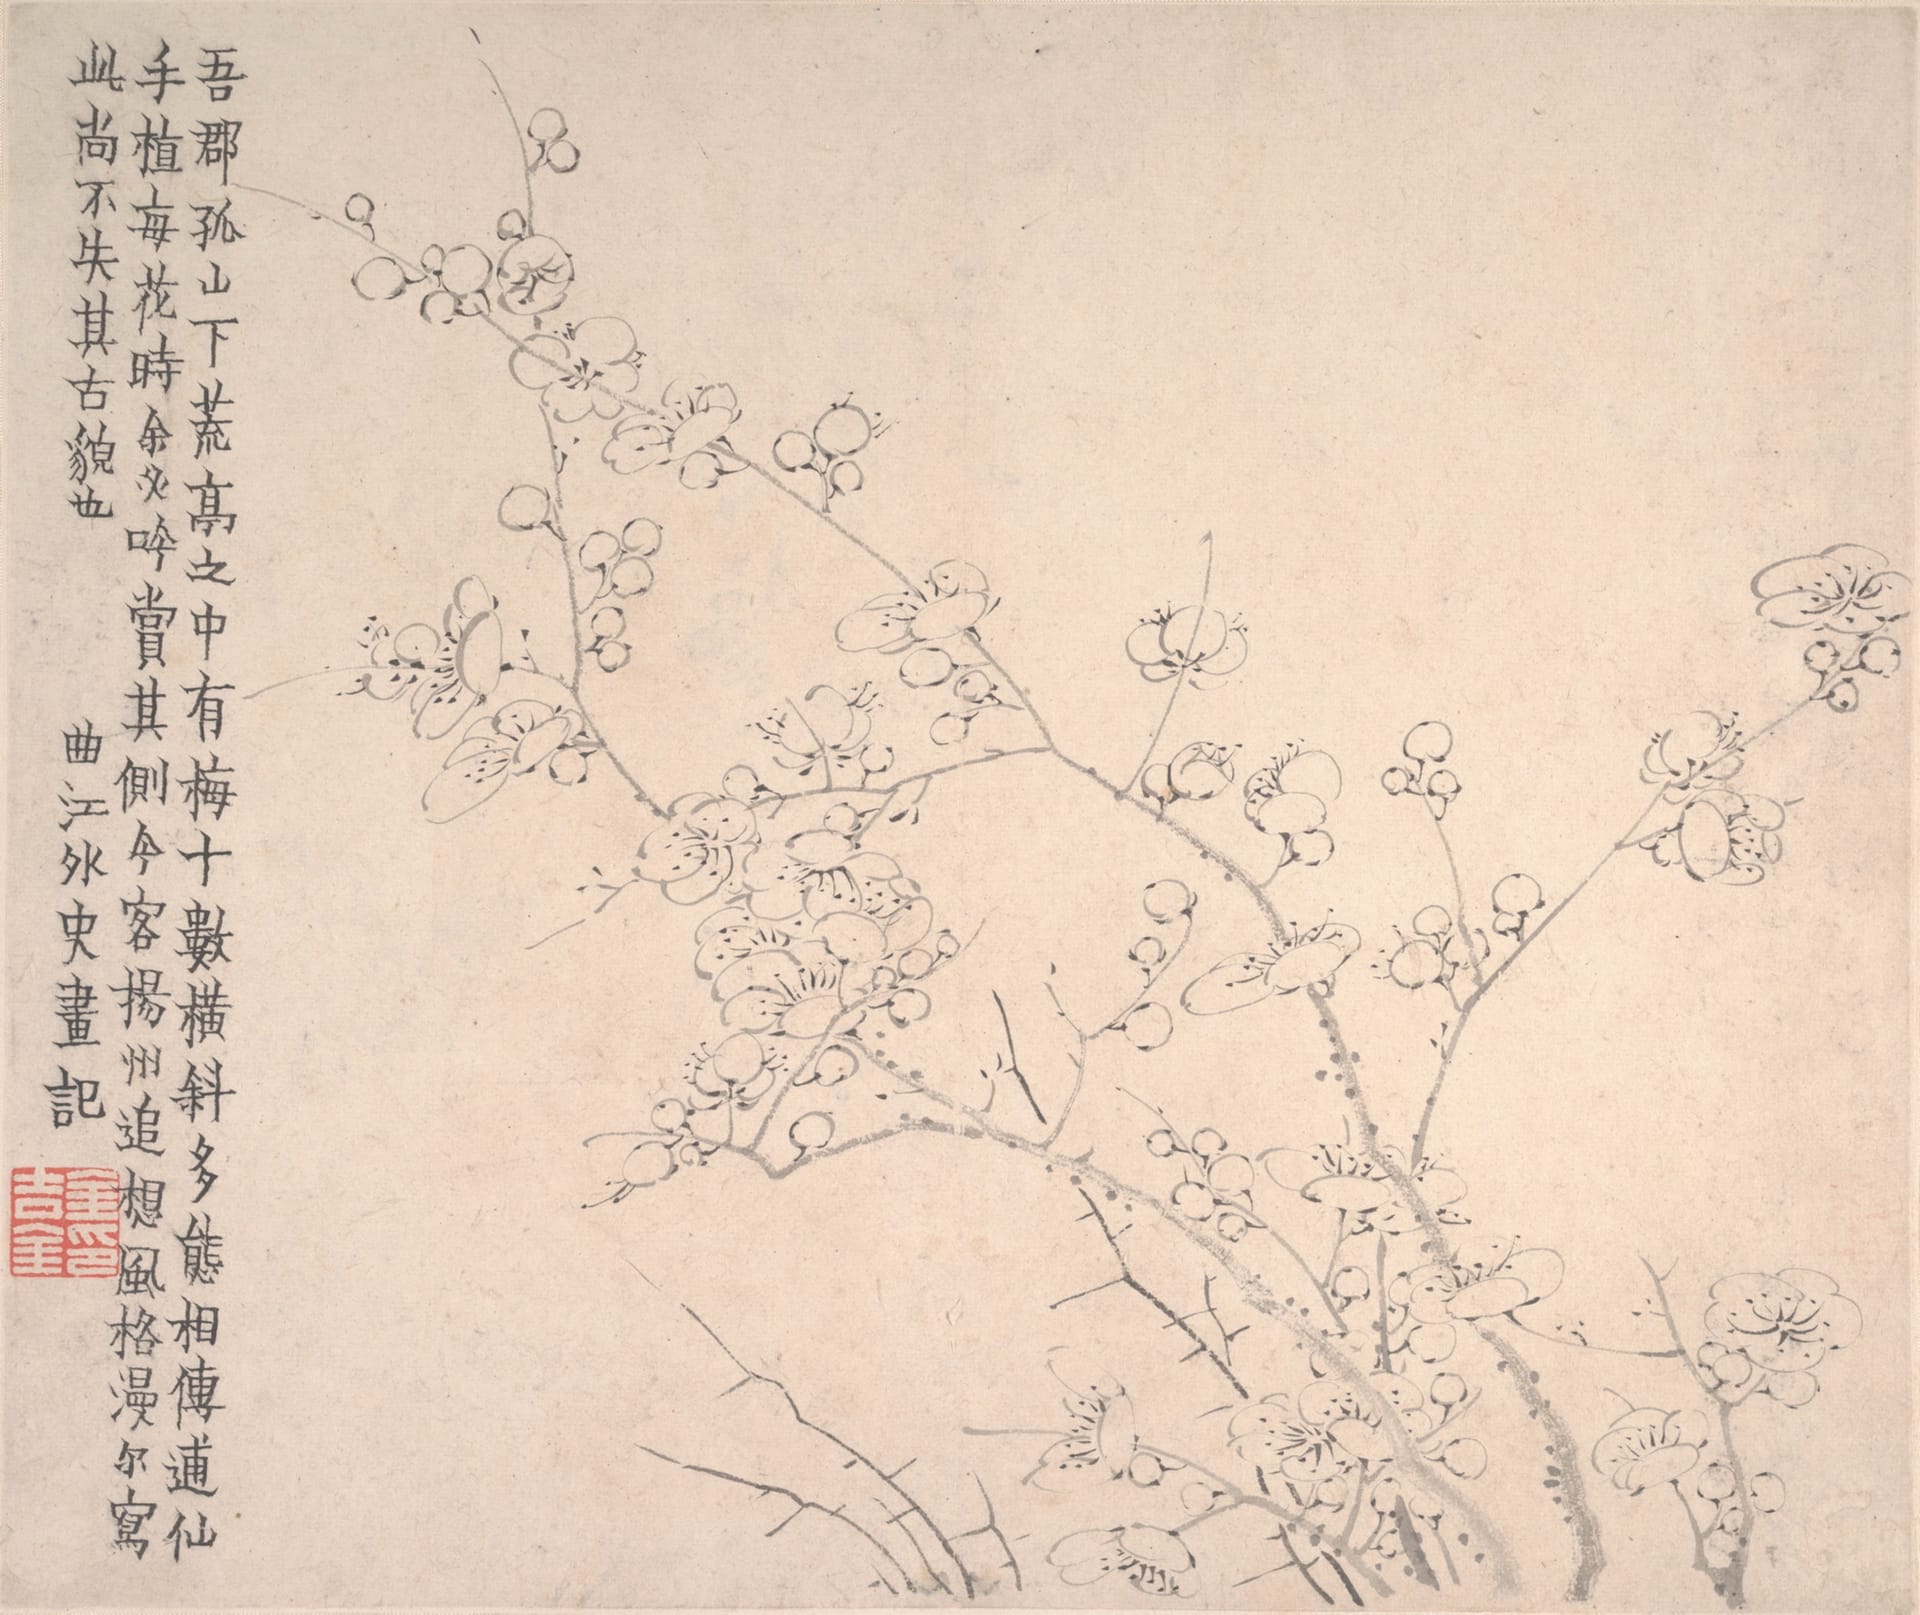 吾郡孤山下荒亭之中有梅十數橫斜多態相傳逋仙
手植每花時余必吟賞其側今客揚州追想風格漫尔寫
此尚不失其古貌也
曲江外史畫記